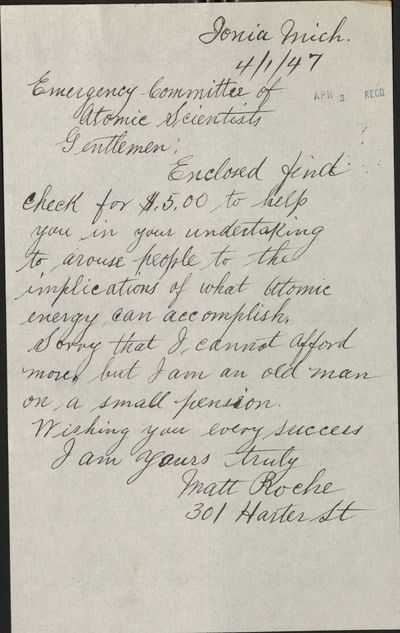 Ionia Mich.
4/1/47
Emergency Committee of
Atomic Scientists
APR 3 RECD
Gentlemen:
Enclosed find
check for $5.00 to help
you in your undertaking
to arouse people to the
implications of what atomic
energy can accomplish.
Sorry that I cannot afford
more, but I am an old man
on a small pension.
Wishing you every success
I am yours truly
Matt Roche
301 Harter St